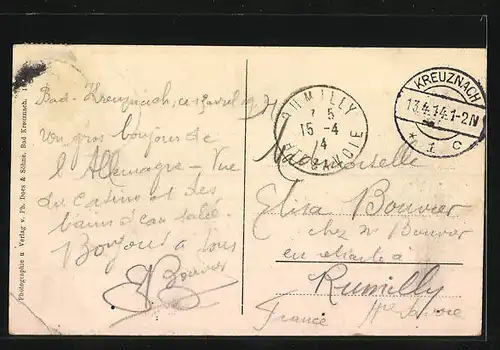 Photographie u Verlag v. Ph. Does & Söhne, Bad Kreuznach.
Bad-Kreuznach, avril
un gros bonjour de
l'Allemagne - Vue
du Casino et des
bains d'eau salée.
Bonjour à tous
Bouvier
RUMILLY
7 5
15 - 4
14
HTE SAVOIE
KREUZNACH
13.4.14.1-2N
* 1 c
Mademoiselle
Elisa Bouvier
chez Mr Bouvier
en retraite à
Rumilly
Hte Savoie
France